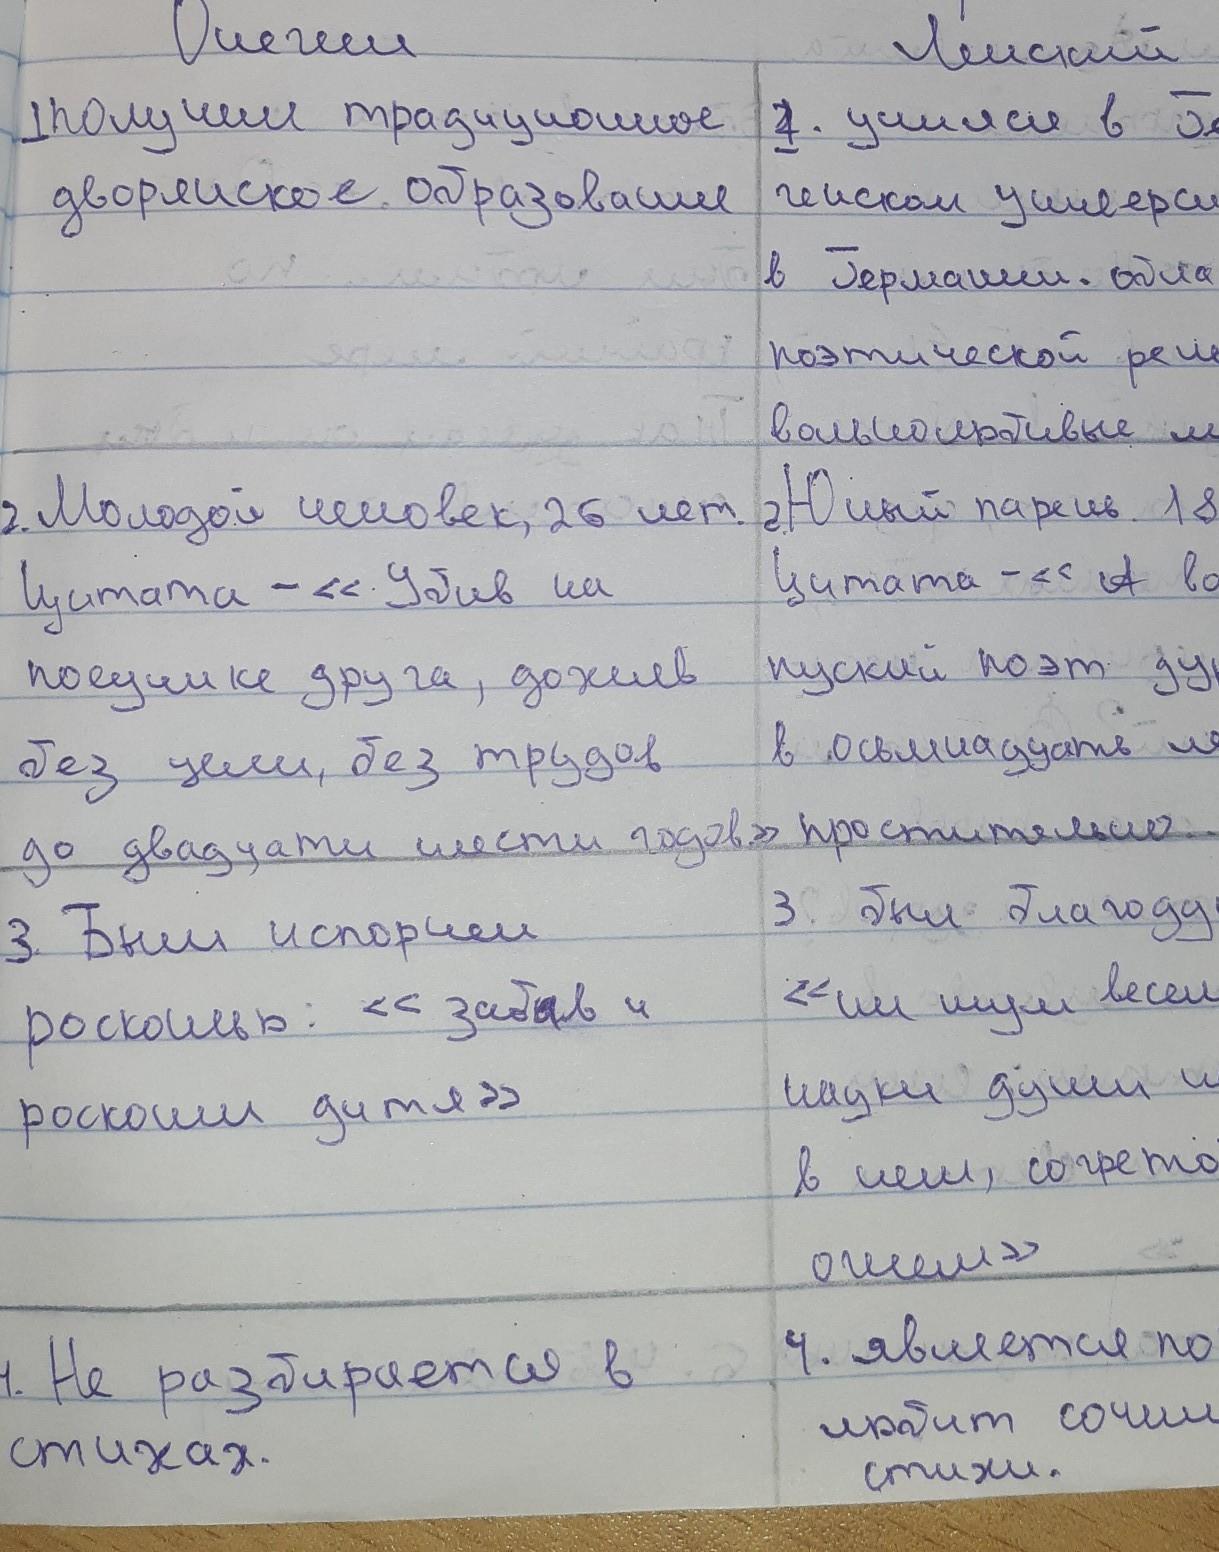 Онегин
Ленский
1 получил традиционное
дворянское образование
1. учился в Ге
генском универси
в Германии. обла
поэтической реч
вольнолюбивые м
2. Молодой человек, 26 лет.
Цитата - << Убив на
поединке друга, дожив
без цели, без трудов
до двадцати шести годов>>
2. Юный парень. 18
Цитата - << А во
пуский поэт ду
в осьмнадцать ле
простительно...
3. Был испорчен
роскошью: << забав и
роскоши дитя>>
3. был благоду
<<ни шум весел
науки души н
в нем, согрето
огнем>>
4. Не разбирается в
стихах.
4. является по
любит сочин
стихи.